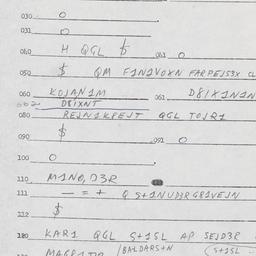 030 O
031 O
040 H QGL $ 041 O
050 $ QM F1N1VOXN FARPEJS3X CL
060 KOJAN1M 061 D8IX1N1N
062 D8IXNT
080 REJN1KPEJT QGL TOJR1
090 $ 091 O
100 O
110 M1NO, D3R
111 - = + Q S+1NUD2RGR1VEJN
112 $
120 KAR1 QGL S+1SL AP SEJD3R
BALDARS+N S+1SL